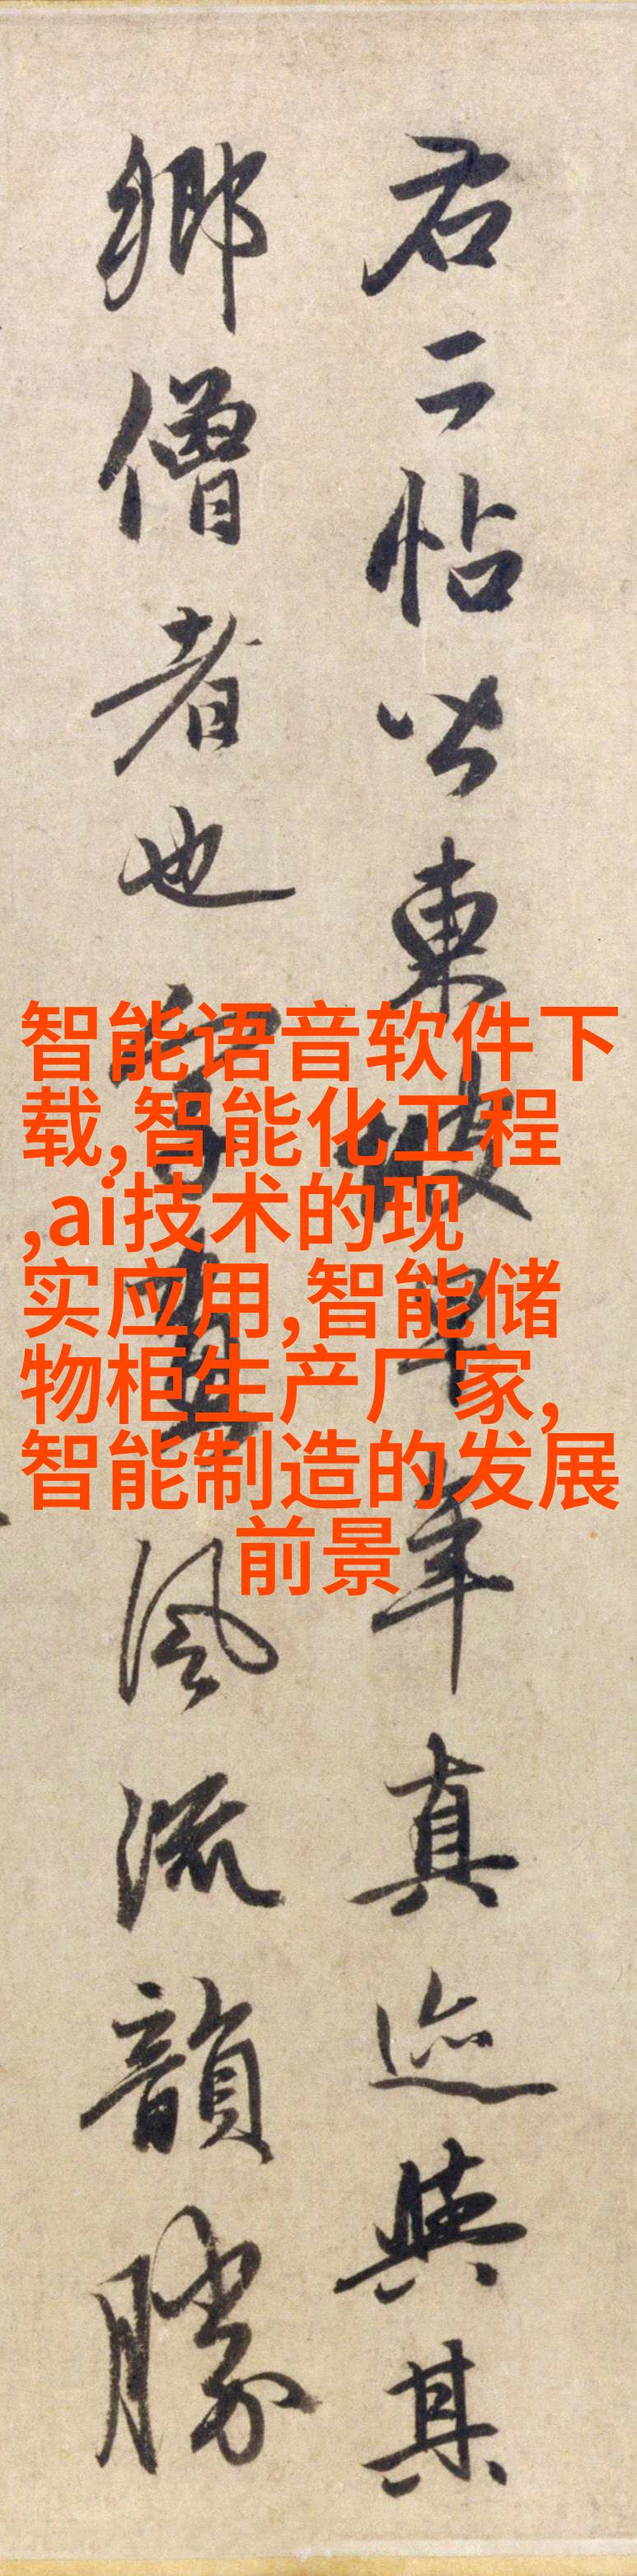 右二帖皆東坡早年真迹與其
鄉僧者也字畫風流韻勝
智能语音软件下
载,智能化工程
,ai技术的现
实应用,智能储
物柜生产厂家,
智能制造的发展
前景